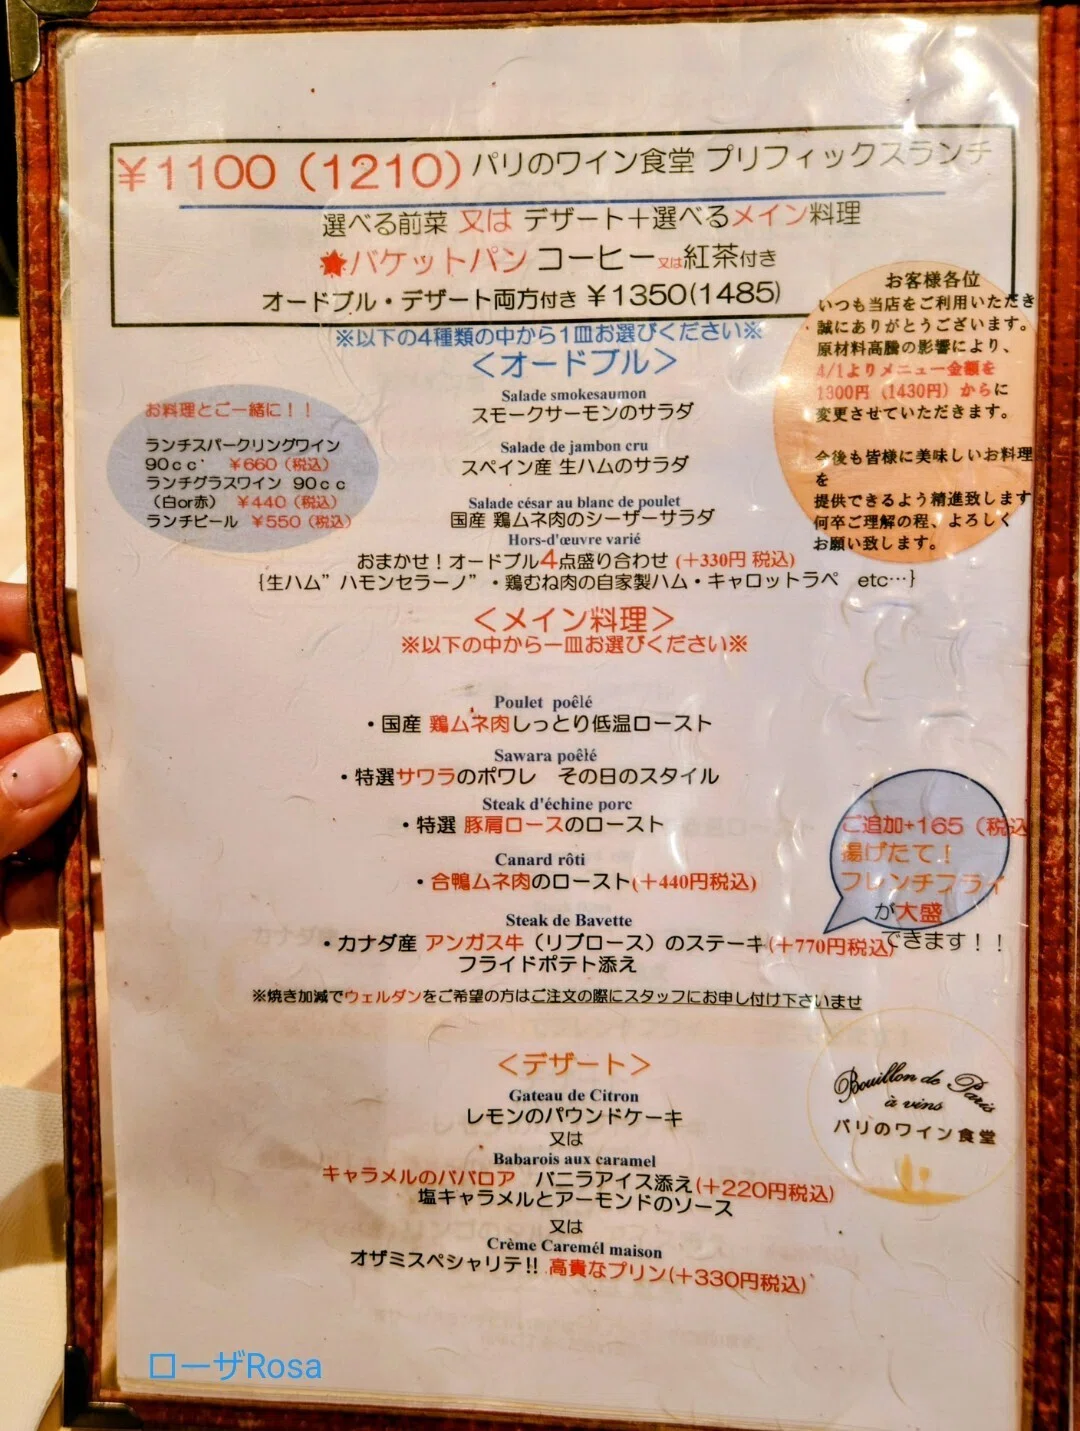 ¥1100（1210）パリのワイン食堂 プリフィックスランチ
選べる前菜 又は デザート＋選べるメイン料理
バケットパン コーヒー又は紅茶付き
オードブル・デザート両方付き ¥1350(1485)
お客様各位
いつも当店をご利用いただき
誠にありがとうございます。
原材料高騰の影響により、
4/1よりメニュー金額を
1300円（1430円）からに
変更させていただきます。
今後も皆様に美味しいお料理
を
提供できるよう精進致します
何卒ご理解の程、よろしく
お願い致します。
※以下の4種類の中から1皿お選びください※
＜オードブル＞
Salade smokesaumon
スモークサーモンのサラダ
Salade de jambon cru
スペイン産 生ハムのサラダ
Salade césar au blanc de poulet
国産 鶏ムネ肉のシーザーサラダ
Hors-d'œuvre varié
おまかせ！オードブル4点盛り合わせ (＋330円 税込)
{生ハム”ハモンセラーノ”・鶏むね肉の自家製ハム・キャロットラペ etc…}
お料理とご一緒に！！
ランチスパークリングワイン
90cc ¥660（税込）
ランチグラスワイン 90cc
（白or赤） ¥440（税込）
ランチビール ¥550（税込）
＜メイン料理＞
※以下の中から一皿お選びください※
Poulet poêlé
・国産 鶏ムネ肉しっとり低温ロースト
Sawara poêlé
・特選サワラのポワレ その日のスタイル
Steak d'échine porc
・特選 豚肩ロースのロースト
Canard rôti
・合鴨ムネ肉のロースト(＋440円税込)
Steak de Bavette
・カナダ産 アンガス牛（リブロース）のステーキ(＋770円税込)
フライドポテト添え
※焼き加減でウェルダンをご希望の方はご注文の際にスタッフにお申し付け下さいませ
ご追加+165（税込
揚げたて！
フレンチフライ
が大盛
できます！！
＜デザート＞
Gateau de Citron
レモンのパウンドケーキ
又は
Babarois aux caramel
キャラメルのババロア バニラアイス添え(＋220円税込)
塩キャラメルとアーモンドのソース
又は
Crème Caremél maison
オザミスペシャリテ!! 高貴なプリン(＋330円税込)
Bouillon de Paris
à vins
パリのワイン食堂
ローザRosa